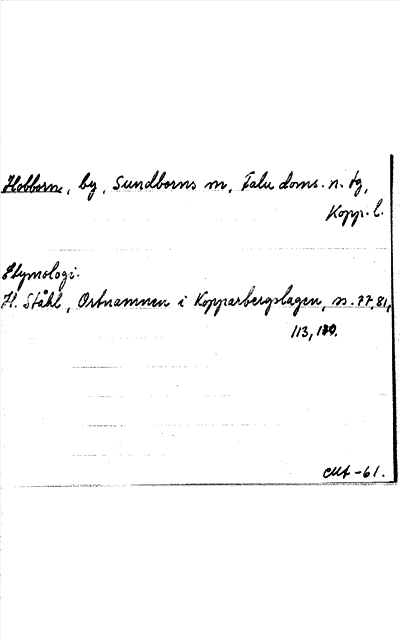 Hobborn, by, Sundborns sn, Falu doms. n. tg,
Kopp. l.
Etymologi:
H. Ståhl, Ortnamnen i Kopparbergslagen, ss. 77, 81,
113, 120.
-61.